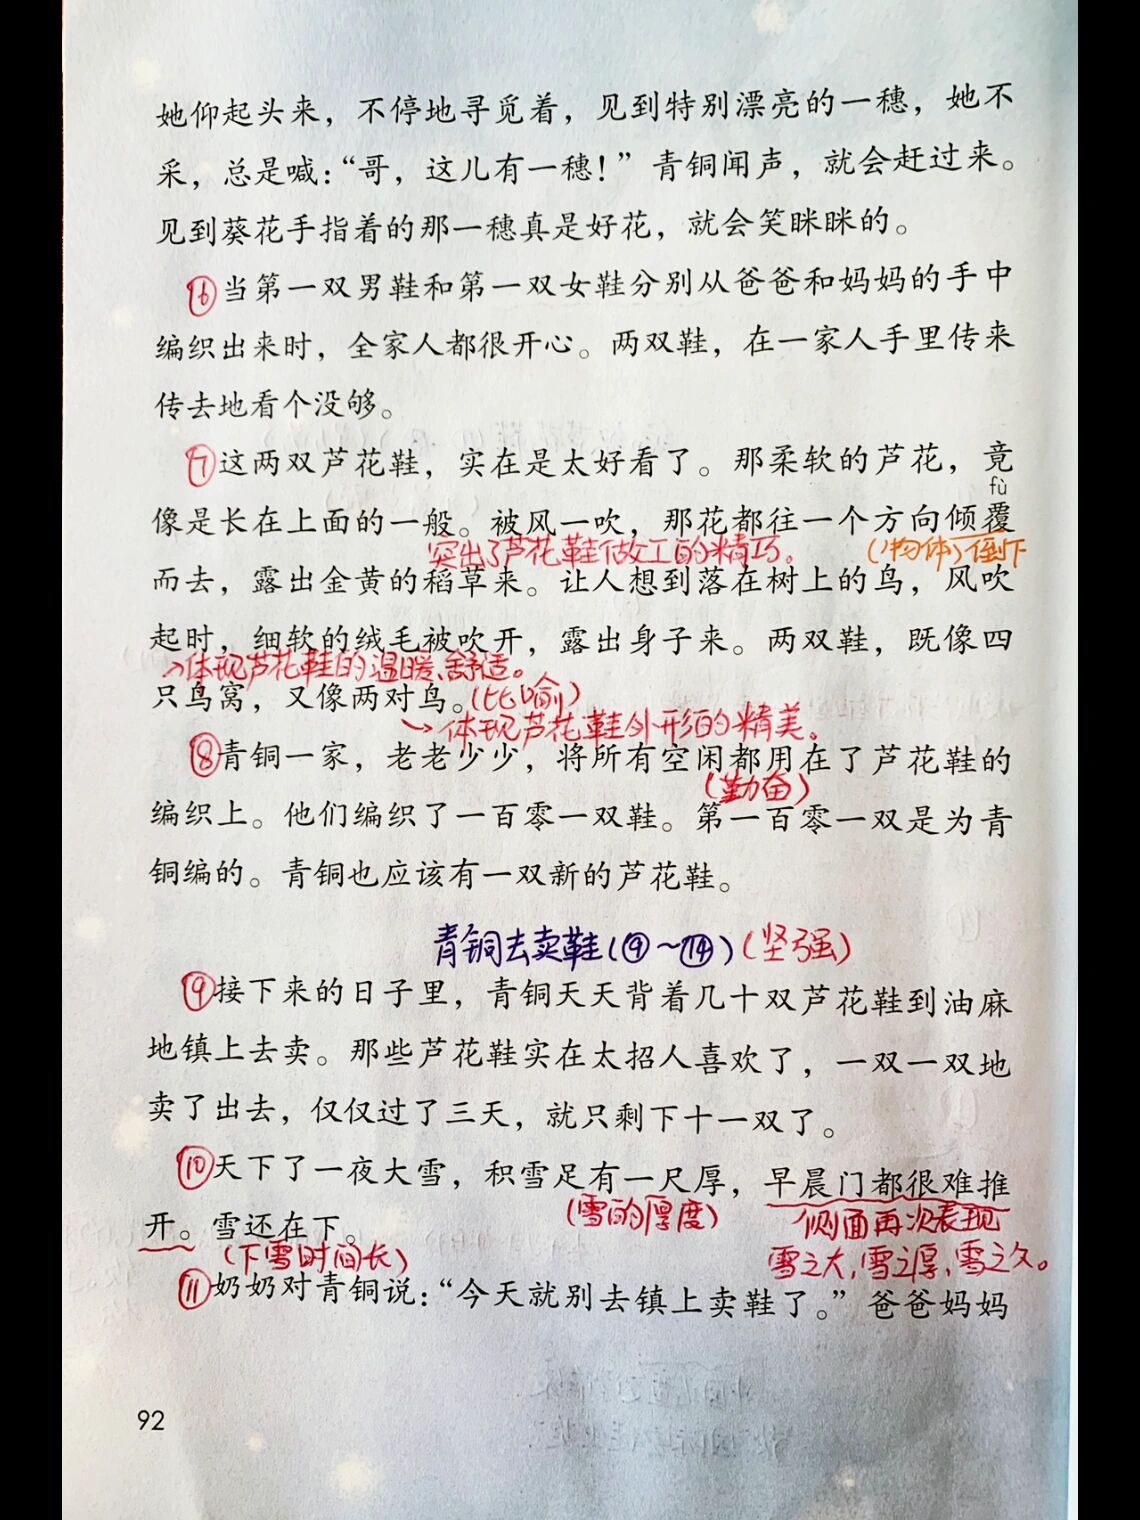 她仰起头来，不停地寻觅着，见到特别漂亮的一穗，她不
采，总是喊：“哥，这儿有一穗！”青铜闻声，就会赶过来。
见到葵花手指着的那一穗真是好花，就会笑眯眯的。
⑥当第一双男鞋和第一双女鞋分别从爸爸和妈妈的手中
编织出来时，全家人都很开心。两双鞋，在一家人手里传来
传去地看个没够。
⑦这两双芦花鞋，实在是太好看了。那柔软的芦花，竟
fù
像是长在上面的一般。被风一吹，那花都往一个方向倾覆
突出了芦花鞋做工的精巧。 (物体)倒下
而去，露出金黄的稻草来。让人想到落在树上的鸟，风吹
起时，细软的绒毛被吹开，露出身子来。两双鞋，既像四
→体现芦花鞋的温暖、舒适。
只鸟窝，又像两对鸟。(比喻)
→体现芦花鞋外形的精美。
⑧青铜一家，老老少少，将所有空闲都用在了芦花鞋的
(勤奋)
编织上。他们编织了一百零一双鞋。第一百零一双是为青
铜编的。青铜也应该有一双新的芦花鞋。
青铜去卖鞋(⑨~⑭)(坚强)
⑨接下来的日子里，青铜天天背着几十双芦花鞋到油麻
地镇上去卖。那些芦花鞋实在太招人喜欢了，一双一双地
卖了出去，仅仅过了三天，就只剩下十一双了。
⑩天下了一夜大雪，积雪足有一尺厚，早晨门都很难推
(雪的厚度) 侧面再次表现
开。雪还在下。
(下雪时间长) 雪之大，雪之厚，雪之久。
⑪奶奶对青铜说：“今天就别去镇上卖鞋了。”爸爸妈妈
92